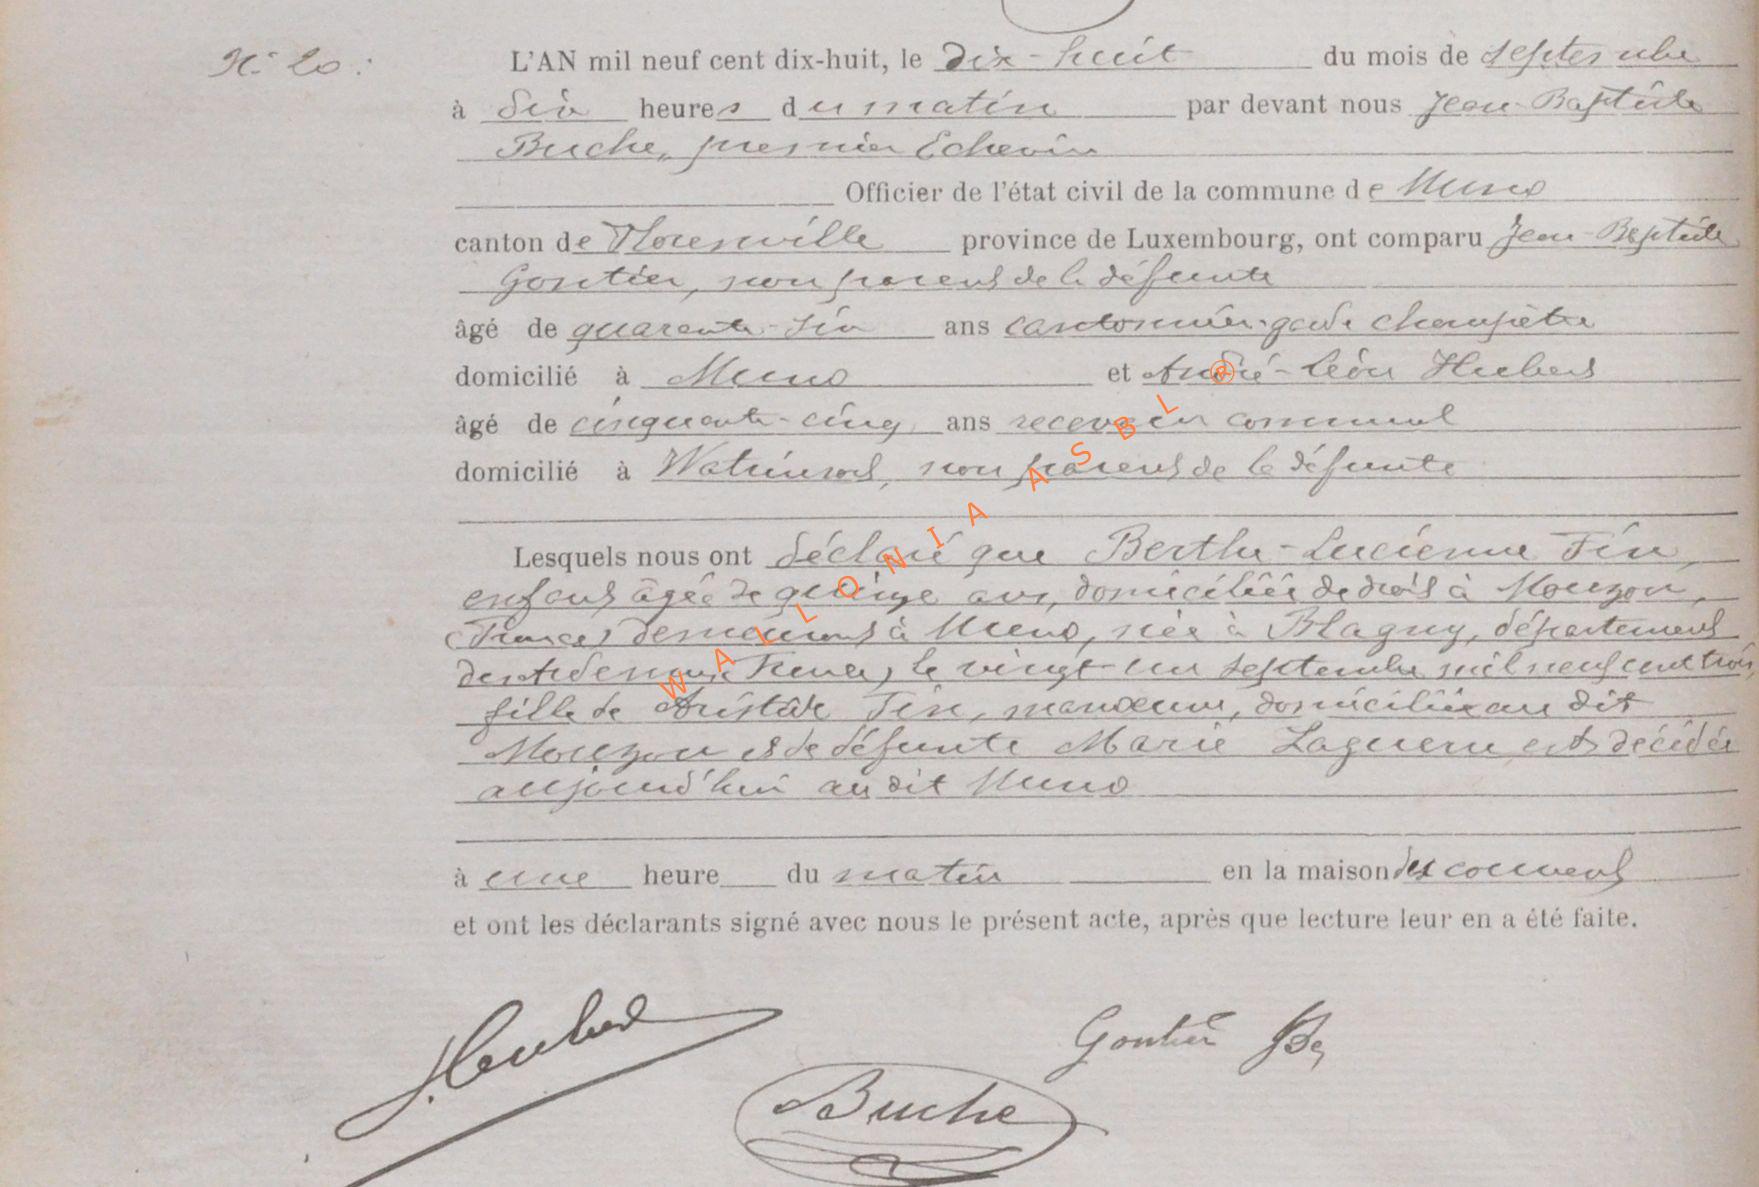 N° 20.
L'AN mil neuf cent dix-huit, le dix-huit du mois de septembre
à dix heures du matin par devant nous Jean-Baptiste
Buche, premier Echevin
Officier de l'état civil de la commune de Muno
canton de Florenville province de Luxembourg, ont comparu Jean-Baptiste
Gontier, non parent de la défunte
âgé de quarante-six ans cantonnier-garde champêtre
domicilié à Muno et André-Léon Hubert
âgé de cinquante-cinq ans receveur communal
domicilié à Watrinsart, non parent de la défunte
Lesquels nous ont déclaré que Berthe-Lucienne Fin,
enfant âgée de quinze ans, domiciliée de droit à Mouzon,
(France) demeurant à Muno, née à Blagny, département
des Ardennes, France, le vingt un septembre mil neuf cent trois,
fille de Aristide Fin, manœuvre, domicilié au dit
Mouzon et de défunte Marie Laguerre, est décédée
aujourd'hui au dit Muno
à une heure du matin en la maison du couvent
et ont les déclarants signé avec nous le présent acte, après que lecture leur en a été faite.
Hubert
Gontier JB
Buche
WALLONIA ASBL ®